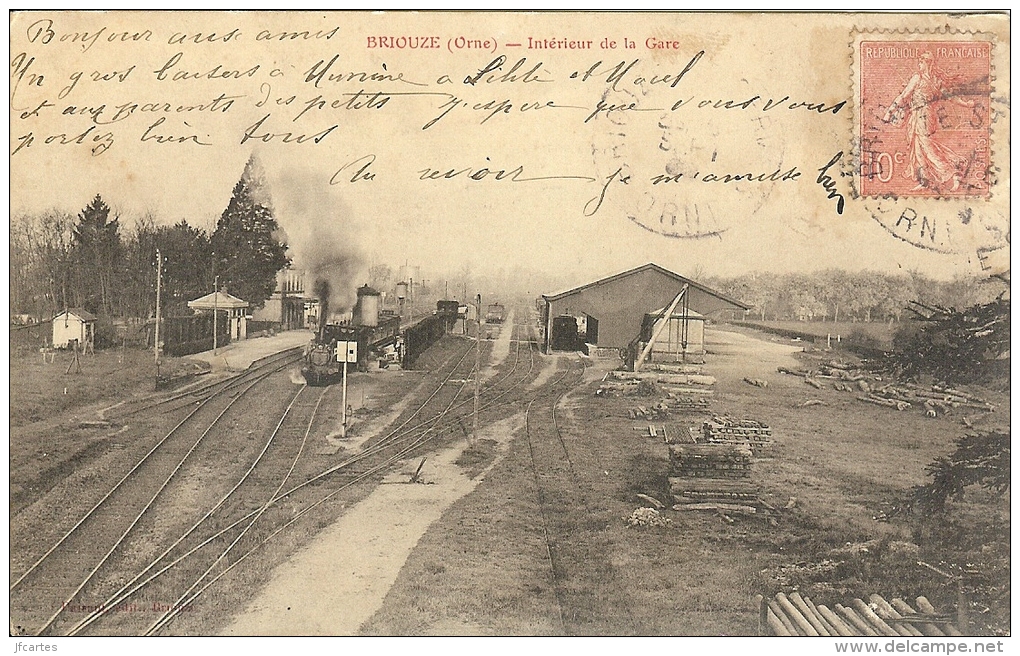 Bonjour aux amis
BRIOUZE (Orne) — Intérieur de la Gare
REPUBLIQUE FRANÇAISE
10c
Un gros baisers à a et
et aux parents des petits j'espere que vous vous
portez bien tous
Au revoir je m'amuse bien
ORNE
jfcartes
www.delcampe.net